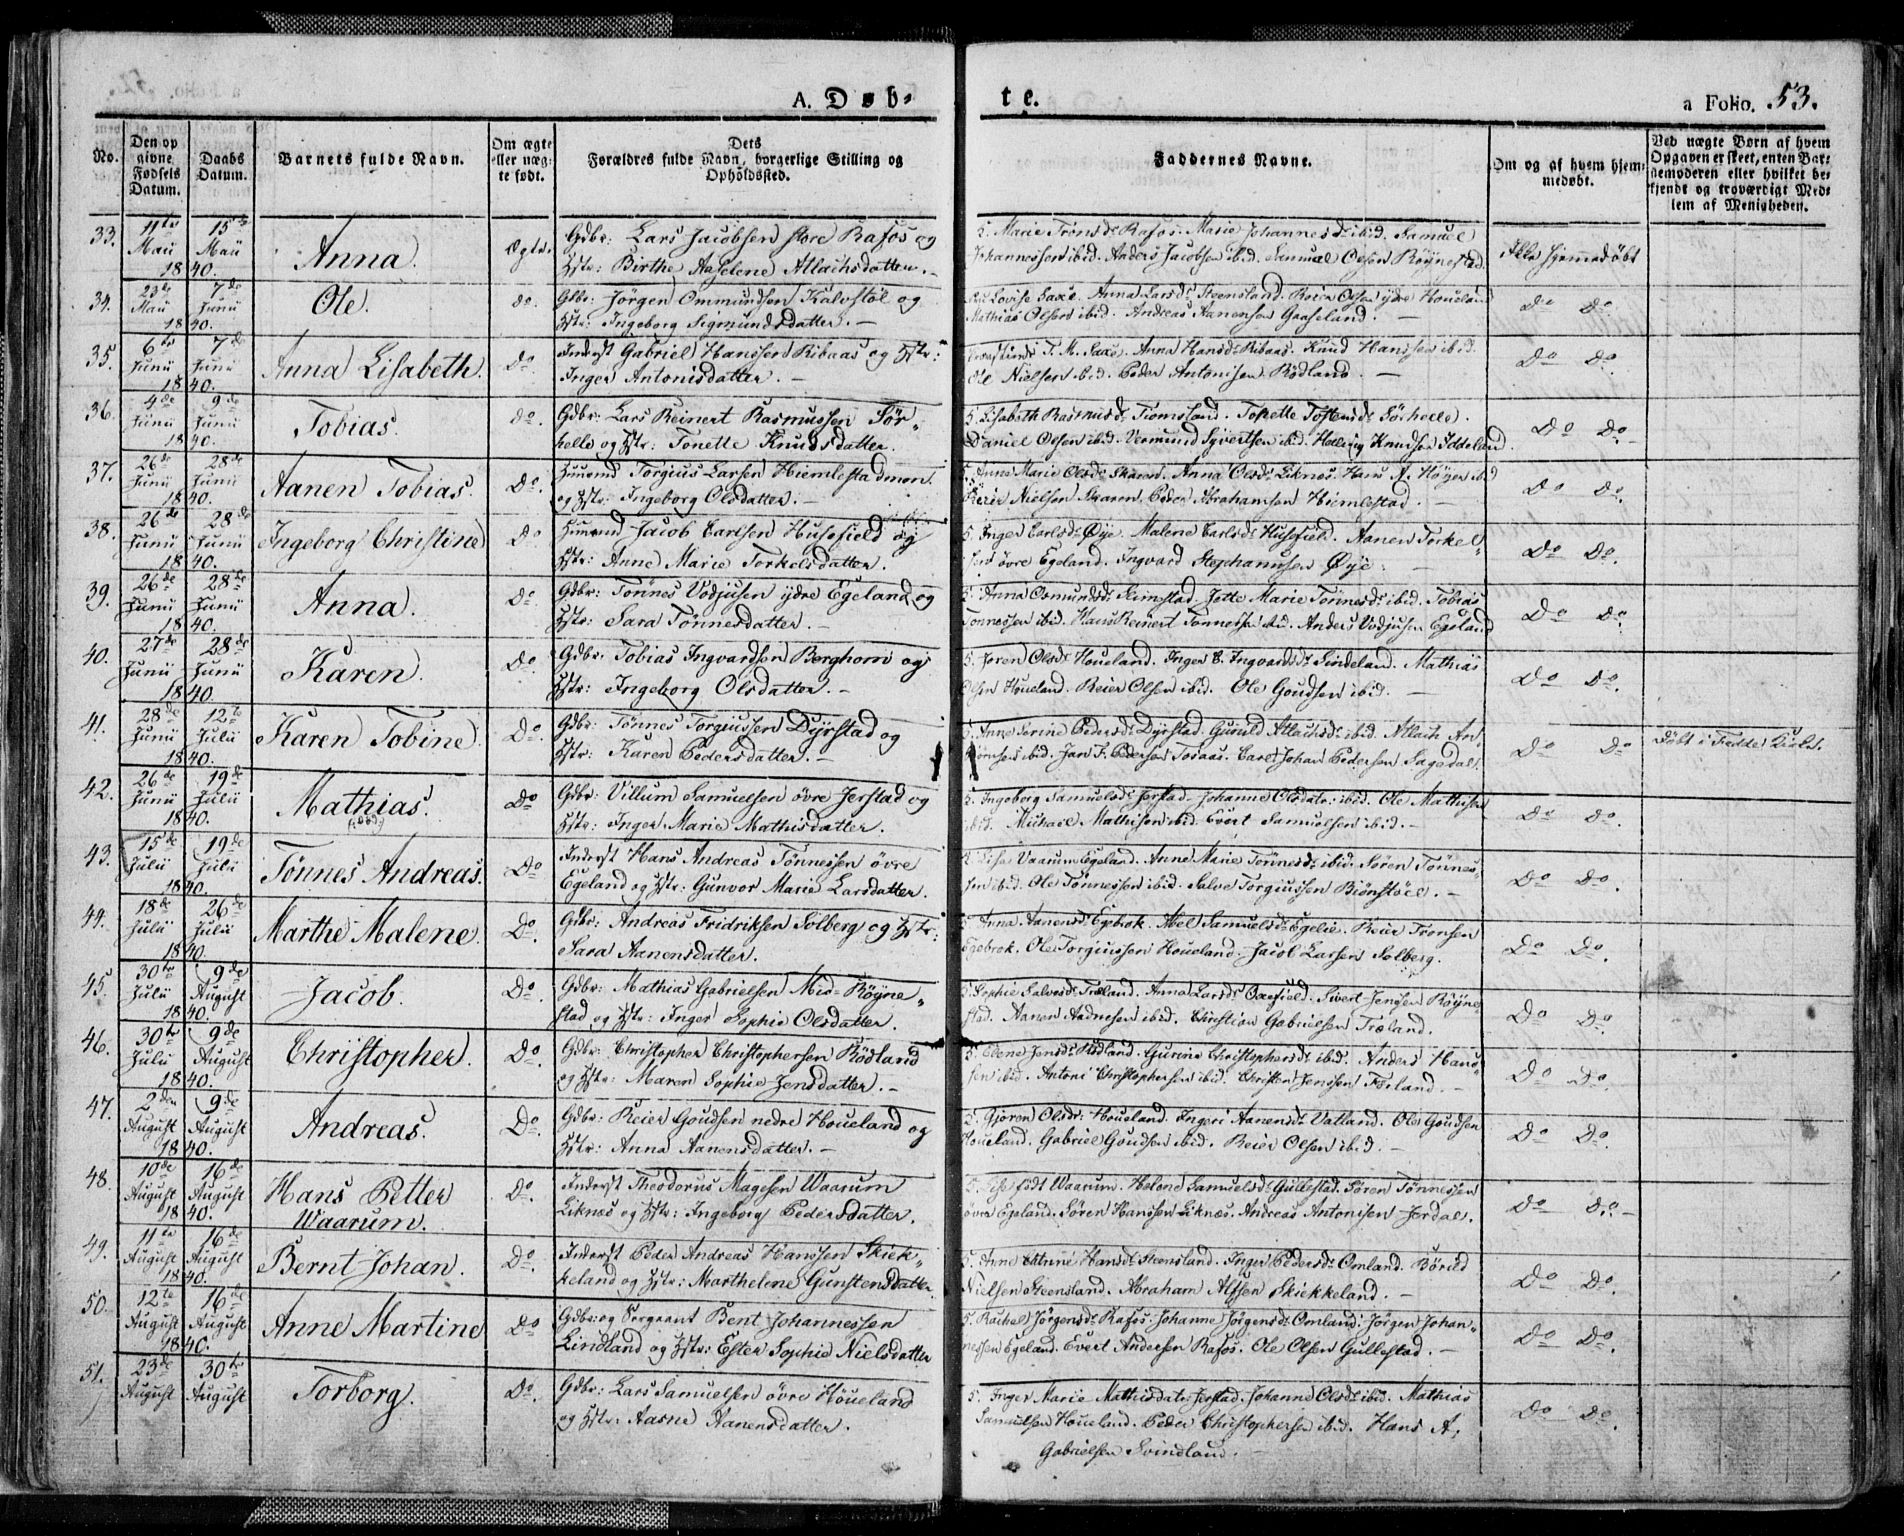 A. Døb-
te.
a Folio. 53.
No.
Den op givne Fødsels Datum.
Daabs Datum.
Barnets fulde Navn.
Om ægte eller uægte født.
Dets Forældres fulde Navn, borgerlige Stilling og Opholdssted.
Faddernes Navne.
Om og af hvem hjemmedøbt.
Ved uægte Børn af hvem Opgaven er skeet, enten Barnemoderen eller hvilket bekjendt og troværdigt Medlem af Menigheden.
33. 11te Maii 1840. 15de Maii Anna. Ægte. Gdbr: Lars Jacobsen store Rafos og
Hstr: Birthe Aaselene Atlachsdatter. -
5. Marie Trönsdr Rafos. Marie Johannesdr ibid. Samuel
Johannessen ibid. Anders Jacobsen ibid. Samuel Olsen Röynestad. Ikke hjemmedøbt
34. 23de Maii 1840. 7de Junii Ole. do. Gdbr: Jörgen Ommundsen Kalvstöl og
Hstr: Ingeborg Sigmundsdatter. -
Lovise Saxe. Anna Larsdr Steensland. Reier Olsen ydre Houeland
Mathias Olsen ibid. Andreas Aanensen Gaaseland. - Do Do.
35. 6te Junii 1840. 7de Junii Anna Lisabeth. do. Inderst Gabriel Hanssen Ribaas og Hstr:
Inger Antonisdatter. -
T. M. Saxe. Anna Hansdr Ribaas. Knud Hanssen ibid.
Ole Nielsen ibid. Peder Antonisen Rödland. - Do Do.
36. 4de Junii 1840. 9de Junii Tobias. do. Gdbr: Lars Reinert Rasmussen Sör-
helle og Hstr: Tonette Knudsdatter.
5. Lisabeth Rasmusdr Tiomsland. Tonette Tostensdr Sörhelle.
Daniel Olsen ibid. Vermund Syvertsen ibid. Helleig Knudsen Iddeland. Do Do.
37. 26de Junii 1840. 28de Junii Aanen Tobias. Do. Huusmd Torgius Larsen Hiemlestadmon.
og Hstr: Ingeborg Olsdatter. -
5. Anne Marie Olsdr Skaren. Anna Olsdr Liknes. Hans A. Höyer ibid
Reier Nielsen Skaren. Peder Abrahamsen Hiemlestad. - Do Do.
38. 26de Junii 1840. 28de Junii Ingeborg Christine Do. Huusmd Jacob Carlsen Husefield og
Hstr: Anne Marie Torkelsdatter.
5. Inger Carlsdr Öye. Malene Carlsdr Husefield. Aanen Torkel-
sen övre Egeland. Ingvard Stephanusen Öye. Do Do.
39. 26de Junii 1840. 28de Junii Anna. Do Gdbr: Tönnes Vodjusen ydre Egeland og
Hstr: Sara Tönnesdatter. -
5. Anna Osmundsdr Rimstad. Jette Marie Tönnesdr ibid. Tobias
Tönnessen ibid. Hans Reinert Tonnessen ibid. Anders Vodjusen Egeland Do Do.
40. 27de Junii 1840. 28de Junii Karen. Do. Gdbr: Tobias Ingvardsen Berghom og
Hstr: Ingeborg Olsdatter. -
5. Jören Olsdr Houeland. Inger E. Ingvardsdr Sindeland. Mathias
Olsen Houeland. Reier Olsen ibid. Ole Goudsen ibid. - Do Do.
41. 28de Junii 1840. 12te Julii Karen Tobine. Do. Gdbr: Tönnes Torgiussen Dyrstad og
Hstr: Karen Pedersdatter. -
5. Anne Serine Pedersdr Dyrstad. Guruld Atlachsdr ibid. Atlach An-
ibid. Jan F. Pedersen Toraas. Carl Johan Pedersen Sagedal. Do Do. Döbt i Fedde Kirke.
42. 26de Junii 1840. 19de Julii Mathias. Do Gdbr: Villum Samuelsen övre Jerstad og
Hstr: Inger Marie Mathisdatter.
5. Ingeborg Samuelsdr Jerstad. Johanne Olsdatr: ibid. Ole Mathisen
ibid. Michael Mathisen ibid. Evert Samuelsen ibid. - Do Do.
43. 15de Julii 1840. 19de Julii Tönnes Andreas. Do Inderst Hans Andreas Tönnessen övre
Egeland og Hstr: Gunvor Marie Larsdatter.
5. Lise Vaarum Egeland. Anne Marie Tönnesdr ibid. Sören Tönnes-
sen ibid. Ole Tönnessen ibid. Salve Torgiussen Biönstöel. - Do Do.
44. 18de Julii 1840. 26de Julii Marthe Malene. Do. Gdbr: Andreas Fridriksen Solberg og Hstr:
Sara Aanensdatter.
5. Anna Aanensdr Egebrok. Abel Samuelsdr Egelie. Reier Tronsen
Egebrok. Ole Torgiussen Houeland. Jacob Larsen Solberg. Do Do.
45. 30te Julii 1840. 9de August Jacob. Do. Gdbr: Mathias Gabrielsen Mid-Röyne-
stad og Hstr: Inger Sophie Olsdatter.
5. Sophie Salvesdr Træland. Anna Larsdr Oxefield. Sivert Jensen Röyne-
stad. Aanen Aadnesen ibid. Christian Gabrielsen Træland. Do Do.
46. 30te Julii 1840. 9de August Christopher. Do. Gdbr: Christopher Christophersen Rödland
og Hstr: Maren Sophie Jensdatter. -
5. Elene Jensdr Rödland. Gurine Christophersdr ibid. Anders Hans-
sen ibid. Antoni Christophersen ibid. Christen Jensen Föiland. - Do Do.
47. 2den August 1840. 9de August Andreas. Do. Gdbr: Reier Goudsen nedre Houeland og
Hstr: Anna Aanensdatter. -
5. Gjören Olsdr: Houeland. Ingeri Aanensdr Vatland. Ole Goudsen
Houeland. Gabriel Goudsen ibid. Reier Olsen ibid. - Do Do.
48. 10de August 1840. 16de August Hans Petter
Waarum. Do. Inderst Theodorus Magesen Waarum
Liknes og Hstr: Ingeborg Pedersdatter.
5. Lise födt Waarum. Helene Samuelsdr Gullestad. Sören Tönnessen
övre Egeland. Sören Hanssen Liknes. Andreas Antonisen Jerdal. Do Do.
49. 11te August 1840. 16de August Bernt Johan. Do. Inderst Peder Andreas Hanssen Skiek-
keland og Hstr: Marthelene Gunstensdatter.
5. Anne Hansdr Steensland. Inger Pedersdr Omland. Börild
Nielsen Steensland. Abraham Alfsen Skiekkeland. - Do Do.
50. 12te August 1840. 16de August Anne Martine Do Gdbr: og Sergeant Bent Johannessen
Lindland og Hstr: Ester Sophie Nielsdatter
5. Rachel Jörgensdr Rafos. Johanne Jörgensdr Omland. Jörgen Johan-
nessen Egeland. Evert Andersen Rafos. Ole Olsen Gullestad. - Do Do.
51. 23de August 30te August Torborg. Do. Gdbr: Lars Samuelsen övre Höueland
og Hstr: Aasne Aanensdatter.
5. Inger Marie Mathisdatr Jerstad. Johanne Olsdr ibid. Mathias
Samuelsen Houeland. Peder Christophersen ibid. Hans A.
Gabrielsen Svindland. - Do Do.